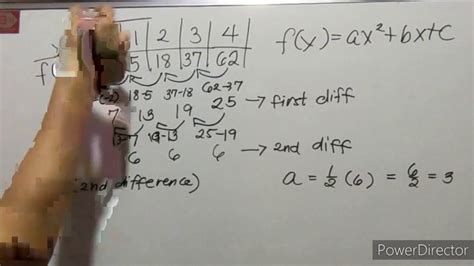 1 2 3 4 f(x)=ax²+bx+c
f 5 18 37 62
18-5 37-18 62-37
7 13 19 25 → first diff
13-7 19-13 25-19
6 6 6 → 2nd diff
(2nd difference) a = ½ (6) = 6/2 = 3
PowerDirector